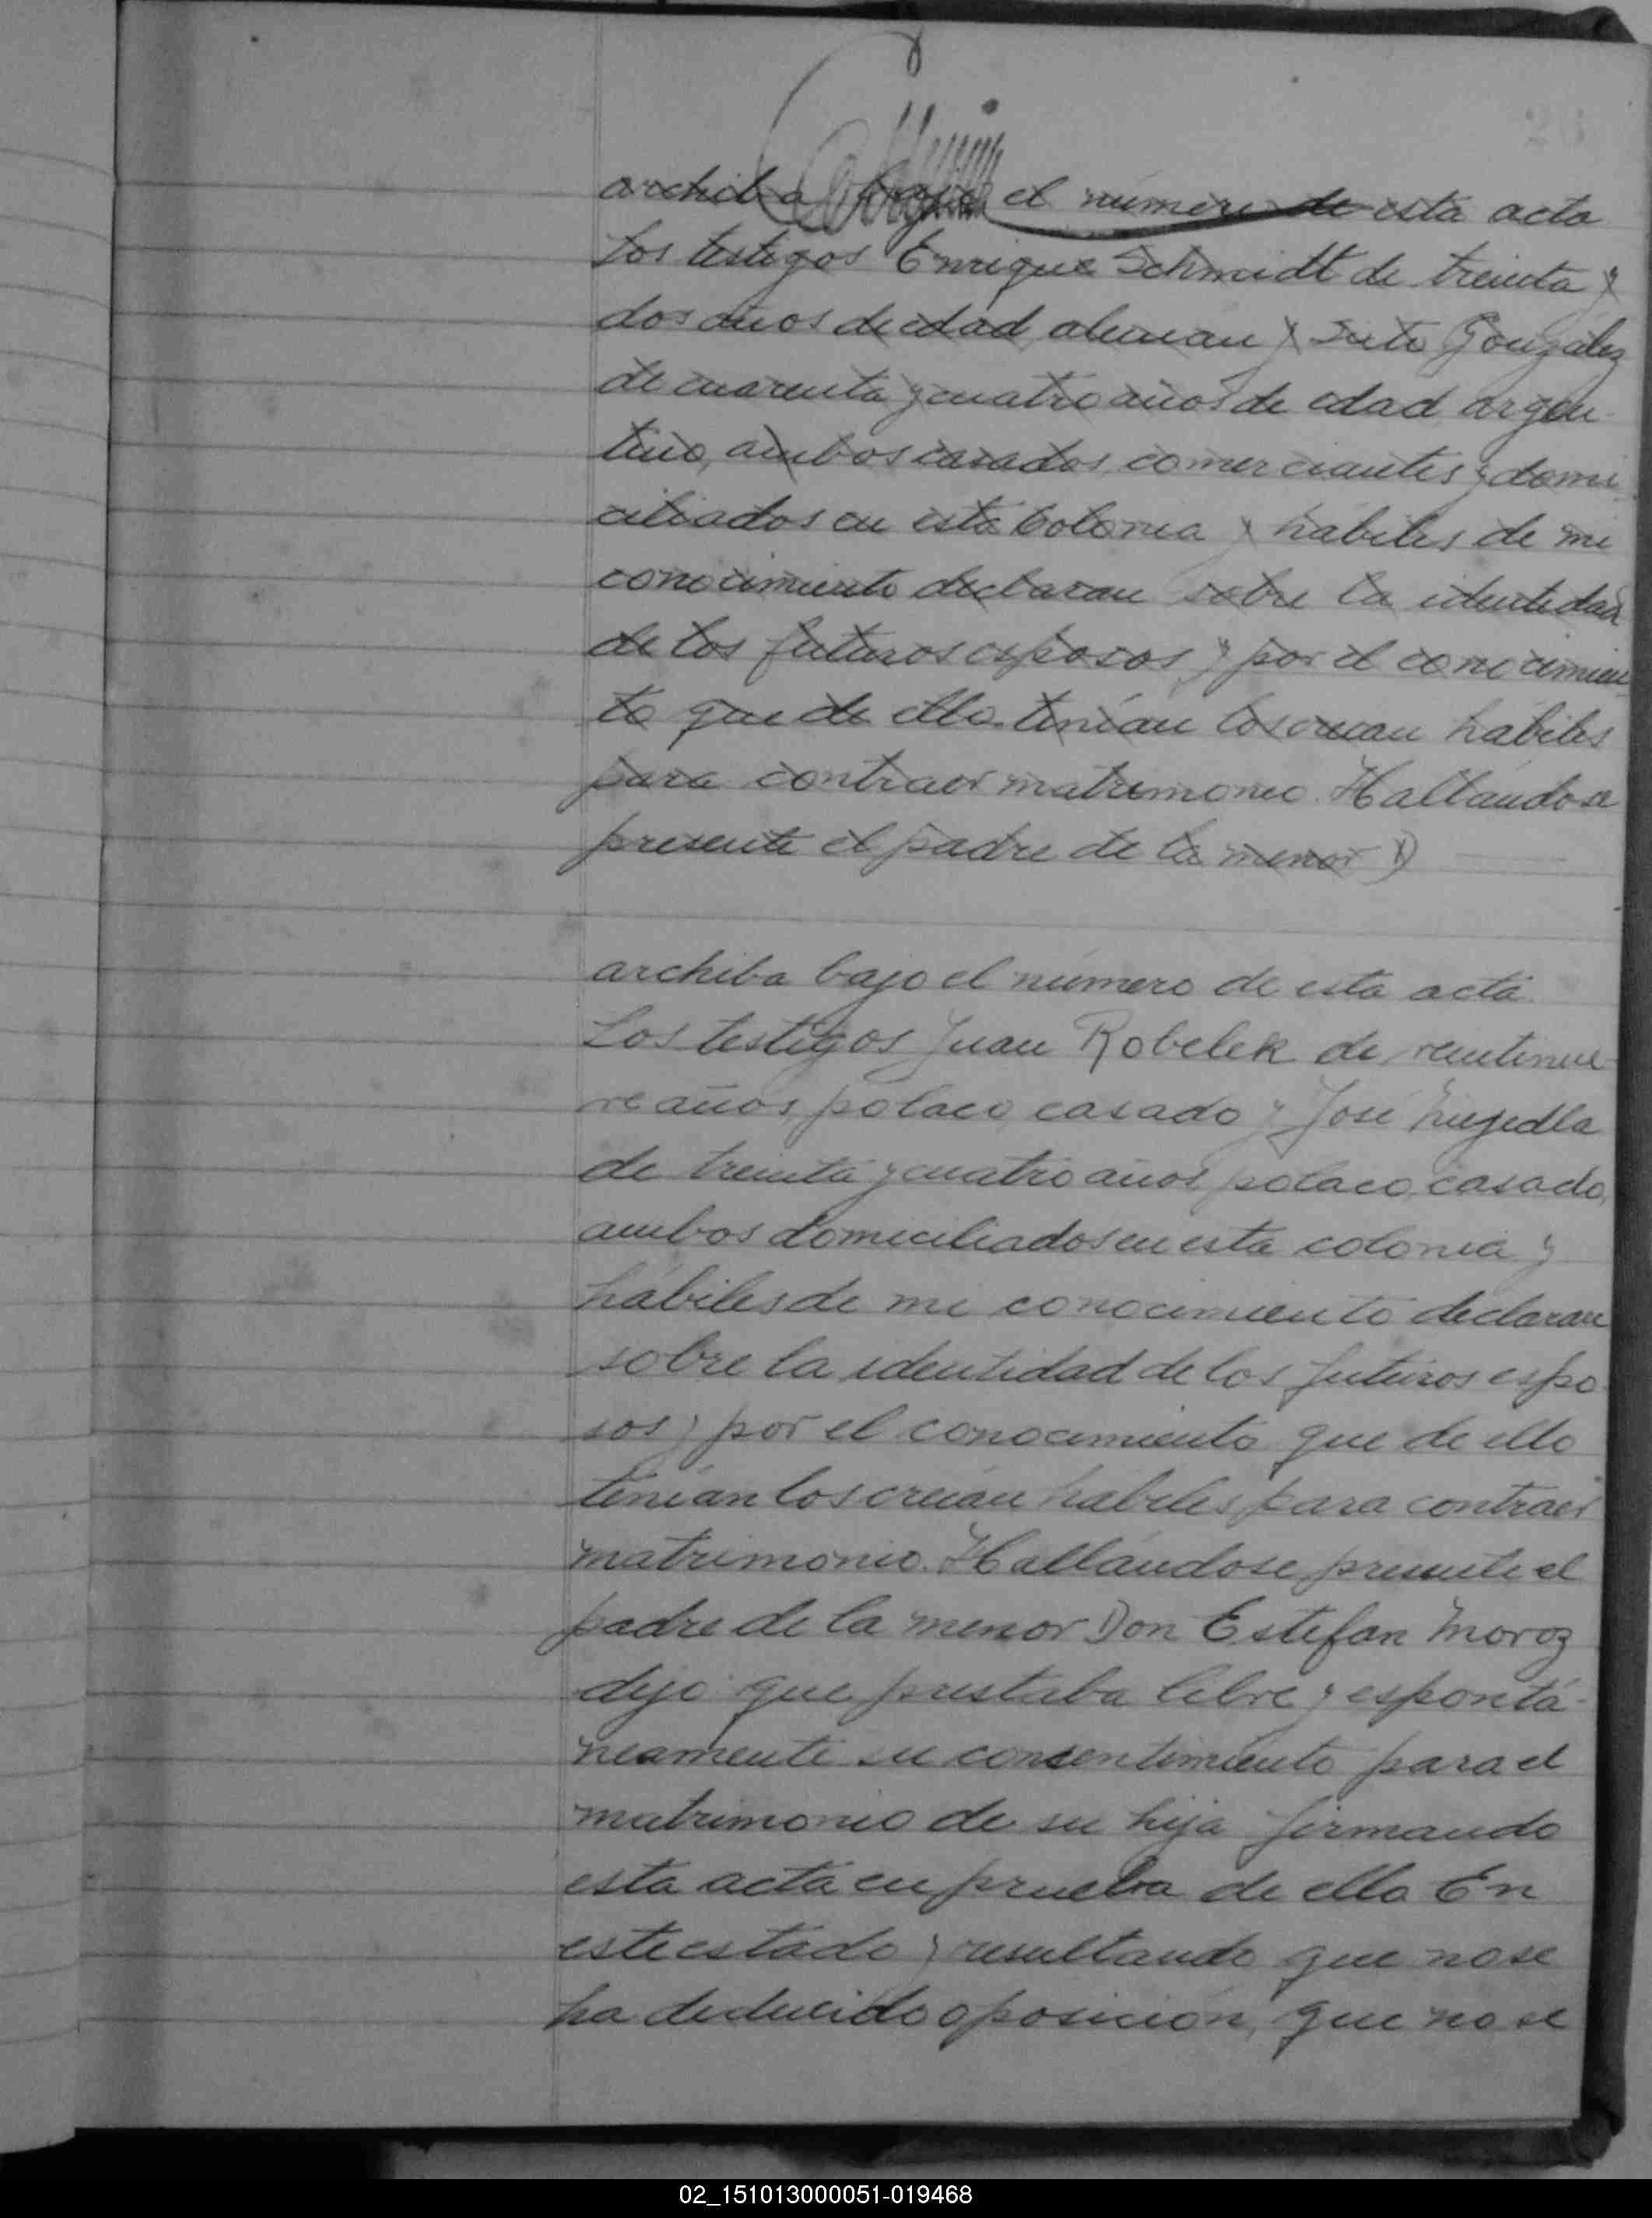 26
archiba bajo el número de esta acta
Los testigos Enrique Schmidt de treinta y
dos años de edad, aleman y González
de cuarenta y cuatro años de edad argen
tino, ambos casados, comerciantes y domi
ciliados en esta colonia y hábiles de mi
conocimiento declaran sobre la identidad
de los futuros esposos y por el conocimien
to que de ello tenían los creian hábiles
para contraer matrimonio. Hallandose
presente el padre de la menor D
archiba bajo el número de esta acta
Los testigos Juan Robelek de veintinue
ve años, polaco, casado y José
de treinta y cuatro años, polaco, casado,
ambos domiciliados en esta colonia y
hábiles de mi conocimiento declaran
sobre la identidad de los futuros espo
sos y por el conocimiento que de ello
tenían los creian habiles para contraer
matrimonio. Hallándose presente el
padre de la menor Don Estefan Moroz
dijo que prestaba libre y espontá-
neamente su consentimiento para el
matrimonio de su hija firmando
esta acta en prueba de ello En
este estado y resultando que no se
ha deducido oposición, que no se
02_151013000051-019468